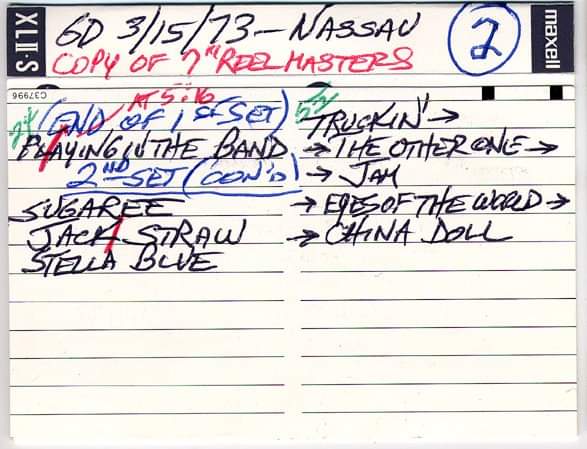 XLII-S
GD 3/15/73 - NASSAU
2
maxell
COPY OF 7" REEL MASTERS
C37996
AT 5:16
(END OF 1st SET)
PLAYING IN THE BAND
2ND SET (CON'D)
SUGAREE
JACK STRAW
STELLA BLUE
52
TRUCKIN' →
→ THE OTHER ONE →
→ JAM
→ EYES OF THE WORLD →
→ CHINA DOLL